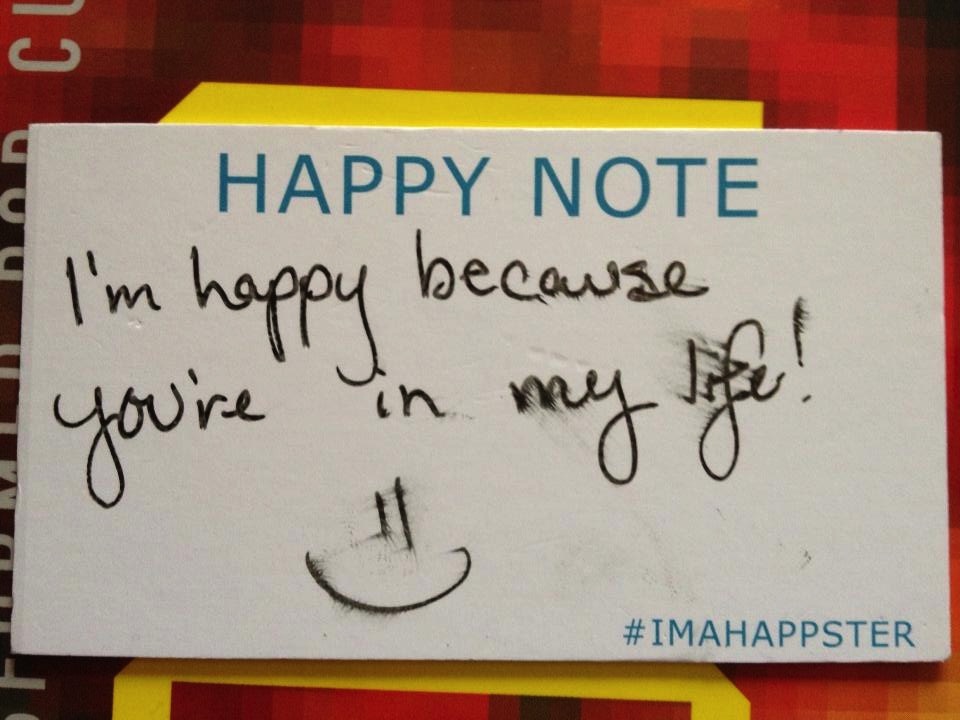 HAPPY NOTE
I'm happy because
you're in my life!
#IMAHAPPSTER